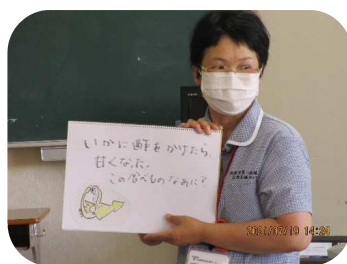 いかに酢をかけたら、
甘くなった。
この食べものなあに？
2021/07/19 14:20